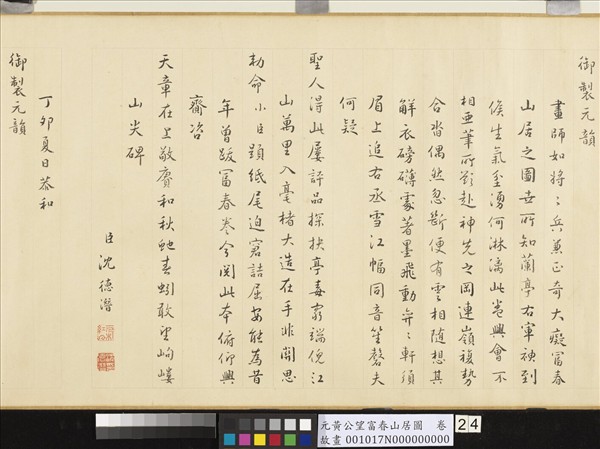 御製元韻
畫師如將將兵兼正奇大癡富春
山居之圖世所知蘭亭右軍神到
候生氣坌湧何淋漓此卷興會不
相亞筆所欲赴神先之岡連嶺複勢
合沓偶然忽斷便有雲相隨想其
解衣磅礴處著墨飛動弁弁軒須
眉上追右丞雪江幅同音笙磬夫
何疑
聖人得此屢評品探抉亭毒窮端倪江
山萬里入毫楮大造在手非關思
勅命小臣題紙尾迫窘詰屈安能為昔
年曾跋富春卷今閱此本俯仰興
齎咨
天章在上敬賡和秋虵春蚓敢望岣嶁
山尖碑
臣沈德潛
丁卯夏日恭和
御製元韻
元黃公望富春山居圖 卷
故畫 001017N000000000
24